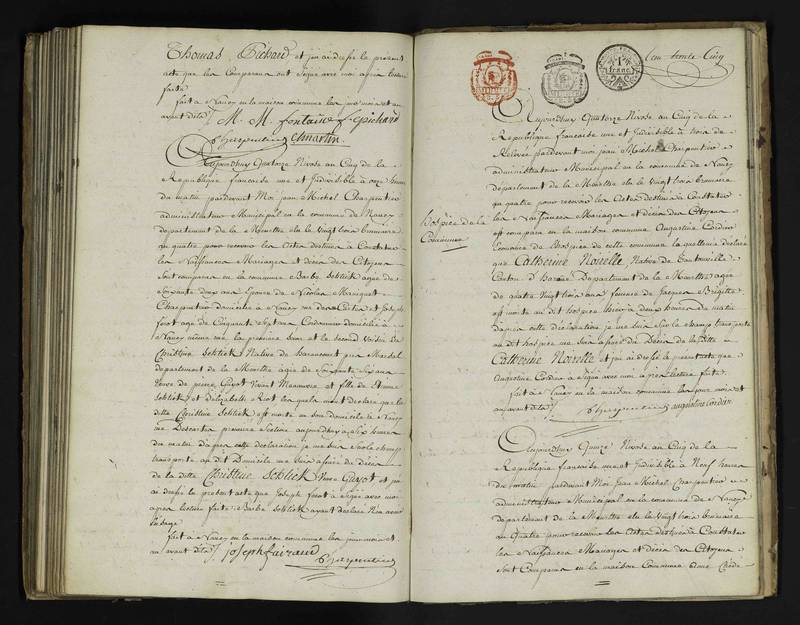 Thomas Pichard et j'ai dressé le present
acte que les Comparans ont Signé avec moi après lecture
faite
fait à Nancy en la maison commune les jour mois et an
avant dits M. M. fontaine f. pichard
Charpentier Martin
Aujourdhuy Quatorze Nivose an Cinq de la
Republique francaise une et Indivisible à onze heures
du matin pardevant Moi jean Michel Charpentier
administrateur Municipal en la commune de Nancy
departement de la Meurthe élu le vingt trois brumaire
an quatre pour recevoir les Actes destinés à Constater
les Naissances Mariages et décès des Citoyens
sont comparus en la commune Barbe Schlick agée de
Soixante deux ans Epouse de Nicolas
Charpentier domicilié à Nancy rue des et Joseph
agé de Cinquante Sept ans Cordonnier domicilié à
Nancy même rue, la première Soeur et le second Voisin de
Christine Schlick Native de haraucourt
departement de la Meurthe agée de Soixante Six ans
Veuve de pierre Guyot Vivant Manoeuvre et fille de Etienne
Schlick et d'Elizabeth lesquels m'ont déclaré que la
ditte Christine Schlick est morte en son domicile à Nancy
rue Descartes première Section aujourdhuy à Six heures
du matin d'après cette déclaration je me suis Sur le champ
transporté au dit Domicile me suis assuré du Décès
de la ditte Christine Schlick Veuve Guyot et j'ai
dressé le présent acte que Joseph a Signé avec moi
après lecture faite. Barbe Schlick ayant déclaré N'en avoir
l'usage
fait à Nancy en la maison commune les jour mois et
an avant dits joseph fairaud
Charpentier
Cent trente Cinq
1 franc
Aujourdhuy Quatorze Nivose an Cinq de la
Republique francaise une et Indivisible à trois de
Relevée pardevant moi jean Michel Charpentier
administrateur Municipal en la commune de Nancy
departement de la Meurthe élu le vingt trois brumaire
an quatre pour recevoir les Actes destinés à Constater
les Naissances Mariages et décès des Citoyens
est comparu en la maison commune Augustine Cordier
Econome du hospice de cette commune laquelle a déclaré
hospice de la
Commune
que Catherine Noirelle Native de
Canton d' Departement de la Meurthe agée
de quatre Vingt trois ans femme de Jacques Brigitte
est morte au dit hospice hier à deux heures du matin
d'après cette déclaration, je me suis sur le champ transporté
au dit hospice me suis assuré du Décès de la ditte
Catherine Noirelle et j'ai dressé le présent acte que
Augustine Cordier a signé avec moi après lecture faite.
fait à Nancy en la maison commune les jour mois et
an avant dits Charpentier augustine Cordier
Aujourdhuy Quinze Nivose an Cinq de la
Republique francaise une et Indivisible à Neuf heures
du matin pardevant Moi Jean Michel Charpentier
administrateur Municipal en la commune de Nancy
departement de la Meurthe élu le vingt trois brumaire
an Quatre pour recevoir les Actes destinés à Constater
les Naissances Mariages et décès des Citoyens
sont Comparus en la maison Commune